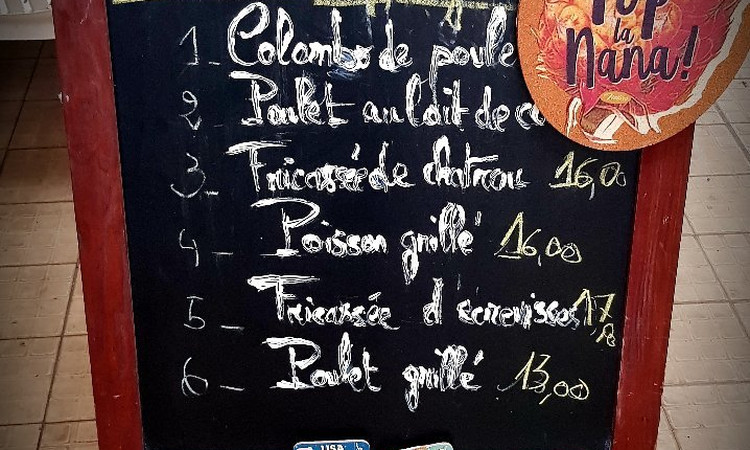 Pop
la
Nana!
1_ Colombo de poule
2 Poulet au lait de co
3_ Fricassée de chatrou 16,00
4_ Poisson grillé 16,00
5_ Fricassée d'écrevisses 17,
6_ Poulet grillé 13,00
USA